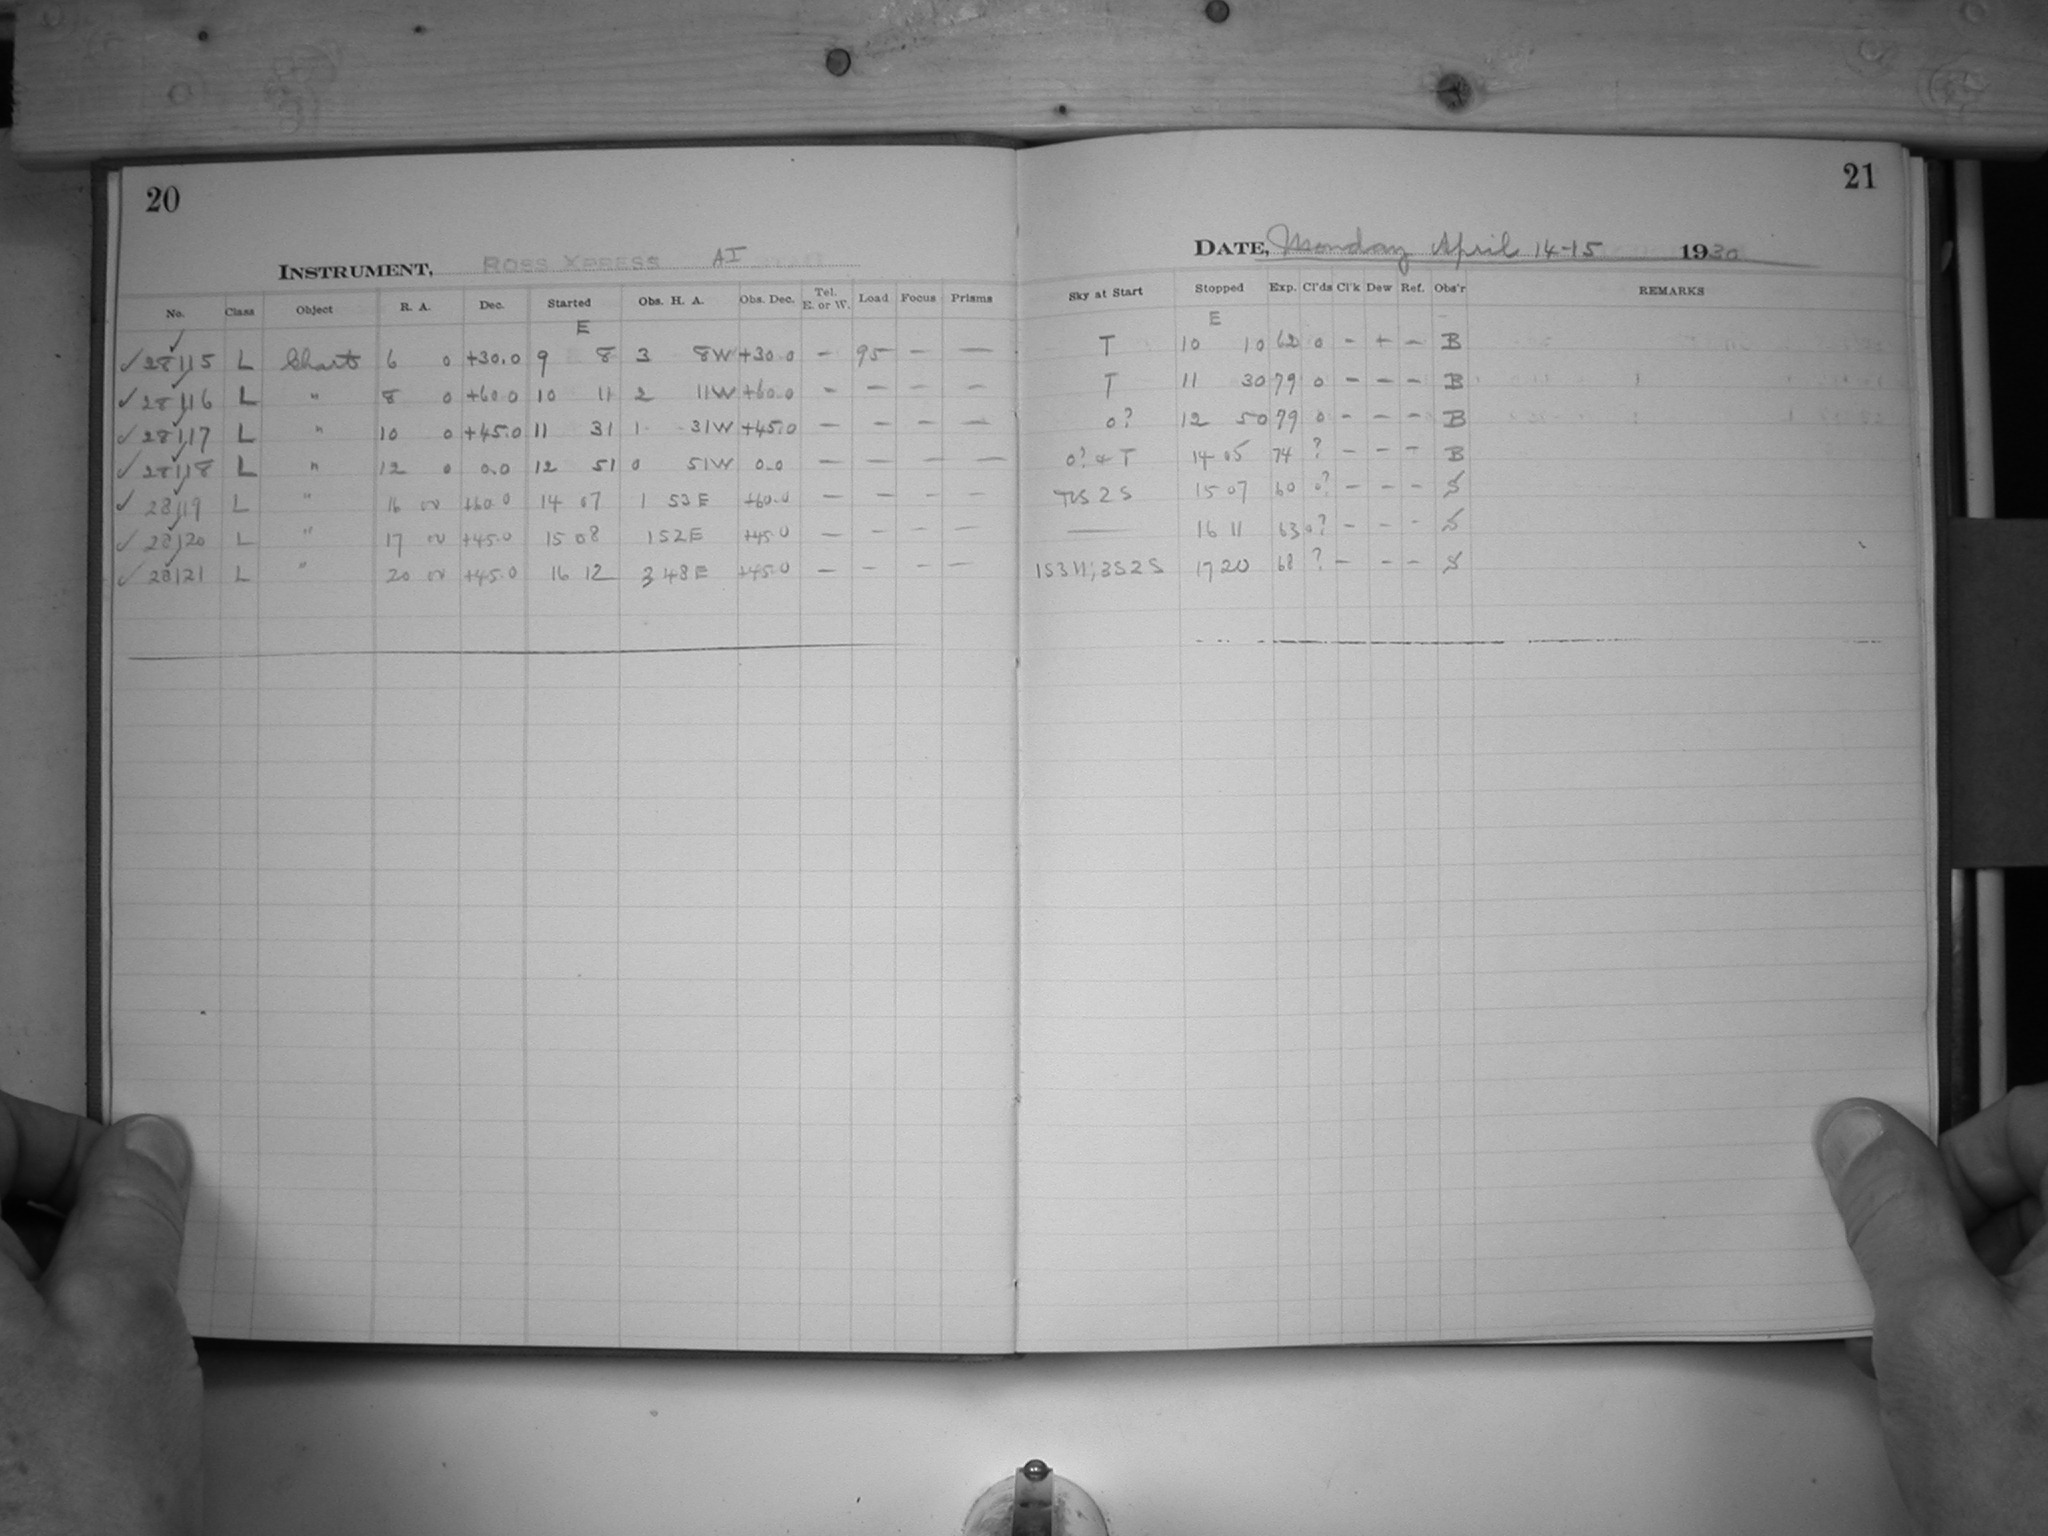 20
INSTRUMENT, ROSS XPRESS AI
No. Class Object R. A. Dec. Started Obs. H. A. Obs. Dec. Tel. E. or W. Load Focus Prisms
E
✓ 28115 L Charts 6 0 +30.0 9 8 3 8W +30.0 — 95 — —
✓ 28116 L " 8 0 +60.0 10 11 2 11W +60.0 — — — —
✓ 28117 L " 10 0 +45.0 11 31 1 31W +45.0 — — — —
✓ 28118 L " 12 0 0.0 12 51 0 51W 0.0 — — — —
✓ 28119 L " 16 00 +60.0 14 07 1 53E +60.0 — — — —
✓ 28120 L " 17 00 +45.0 15 08 1 52E +45.0 — — — —
✓ 28121 L " 20 00 +45.0 16 12 3 48E +45.0 — — — —
21
DATE, Monday April 14-15 1930
Sky at Start Stopped Exp. Cl'ds Cl'k Dew Ref. Obs'r REMARKS
E
T 10 10 62 0 — + — B
T 11 30 79 0 — — — B
0? 12 50 79 0 — — — B
0? & T 14 05 74 ? — — — B
2S 15 07 60 0? — — — S
— 16 11 63 0? — — — S
1S311; 3S2S 17 20 68 ? — — — S